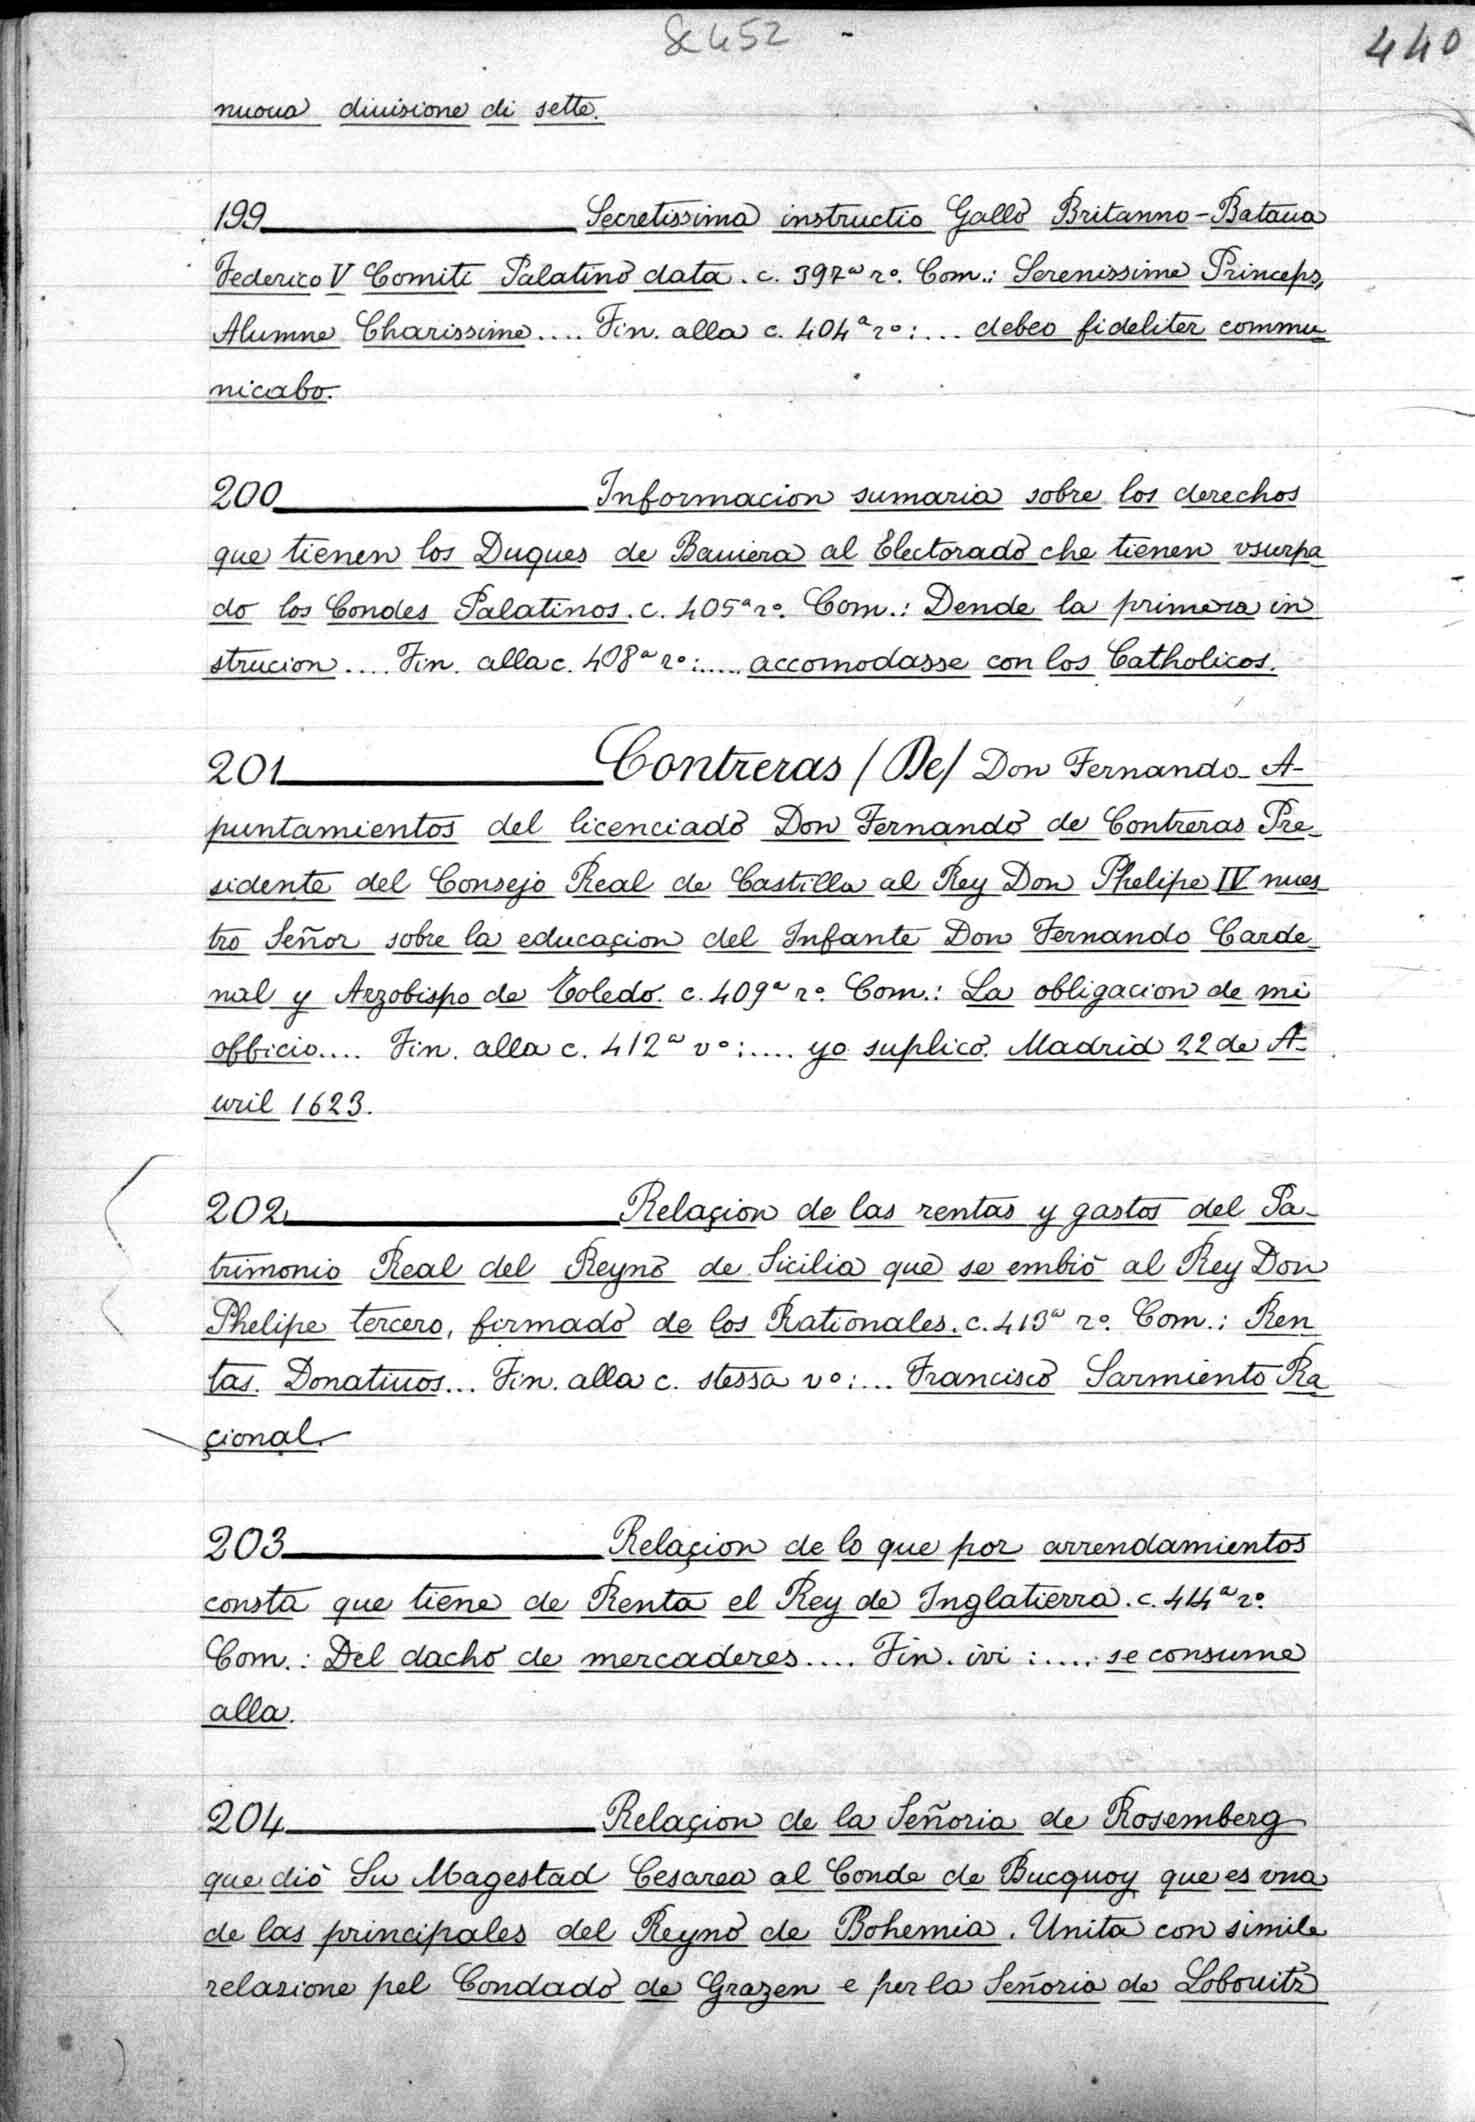 & 452
440
nuoua diuisione di sette.
199 Secretissima instructio Gallo Britanno-Bataua
Federico V Comiti Palatino data. c. 397ª rº. Com.: Serenissime Princeps,
Alumne Charissime.... Fin. alla c. 404ª rº:... debeo fideliter commu
nicabo.
200 Informacion sumaria sobre los derechos
que tienen los Duques de Bauiera al Electorado che tienen vsurpa
do los Condes Palatinos. c. 405ª rº. Com.: Dende la primera in
strucion.... Fin. alla c. 408ª rº:.... accomodasse con los Catholicos.
201 Contreras /De/ Don Fernando - A-
puntamientos del licenciado Don Fernando de Contreras Pre-
sidente del Consejo Real de Castilla al Rey Don Phelipe IV nues
tro Señor sobre la educaçion del Infante Don Fernando Carde-
nal y Arzobispo de Toledo. c. 409ª rº. Com.: La obligacion de mi
officio.... Fin. alla c. 412ª vº:.... yo suplico. Madrid 22 de A-
uril 1623.
202 Relaçion de las rentas y gastos del Pa-
trimonio Real del Reyno de Sicilia que se embiò al Rey Don
Phelipe tercero, firmado de los Rationales. c. 413ª rº. Com.: Ren
tas. Donatiuos... Fin. alla c. stessa vº:... Francisco Sarmiento Ra
çional.
203 Relaçion de lo que por arrendamientos
consta que tiene de Renta el Rey de Inglatierra. c. 414ª rº.
Com.: Del dacho de mercaderes.... Fin. ivi:.... se consume
alla.
204 Relaçion de la Señoria de Rosemberg
que diò Su Magestad Cesarea al Conde de Bucquoy que es vna
de las principales del Reyno de Bohemia. Unita con simile
relazione pel Condado de Grazen e per la Señoria de Lobouitz